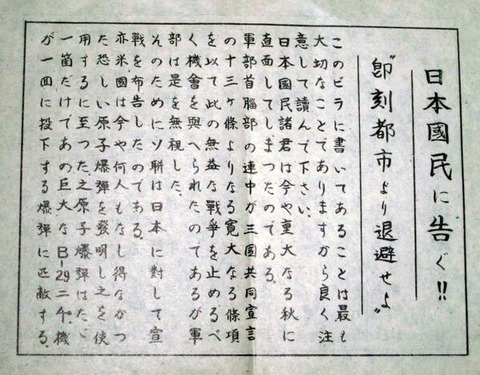 日本國民に告ぐ!!
"即刻都市より退避せよ"
このビラに書いてあることは最も
大切なことでありますから良く注
意して讀んで下さい。
日本國民諸君は今や重大なる秋に
直面してしまつたのである。
軍部首腦部の連中が三國共同宣言
の十三ヶ條よりなる寛大なる條項
を以て此の無益な戰爭を止めるべ
く機會を與へられたのであるが軍
部は是を無視した。
そのためにソ聯は日本に對して宣
戰を布告したのである。
亦米國は今や何人もなし得なかつ
た恐しい原子爆彈を發明し之を使
用するに至つた之原子爆彈はたゞ
一箇だけであの巨大なB-29二千機
が一回に投下する爆彈に匹敵する。